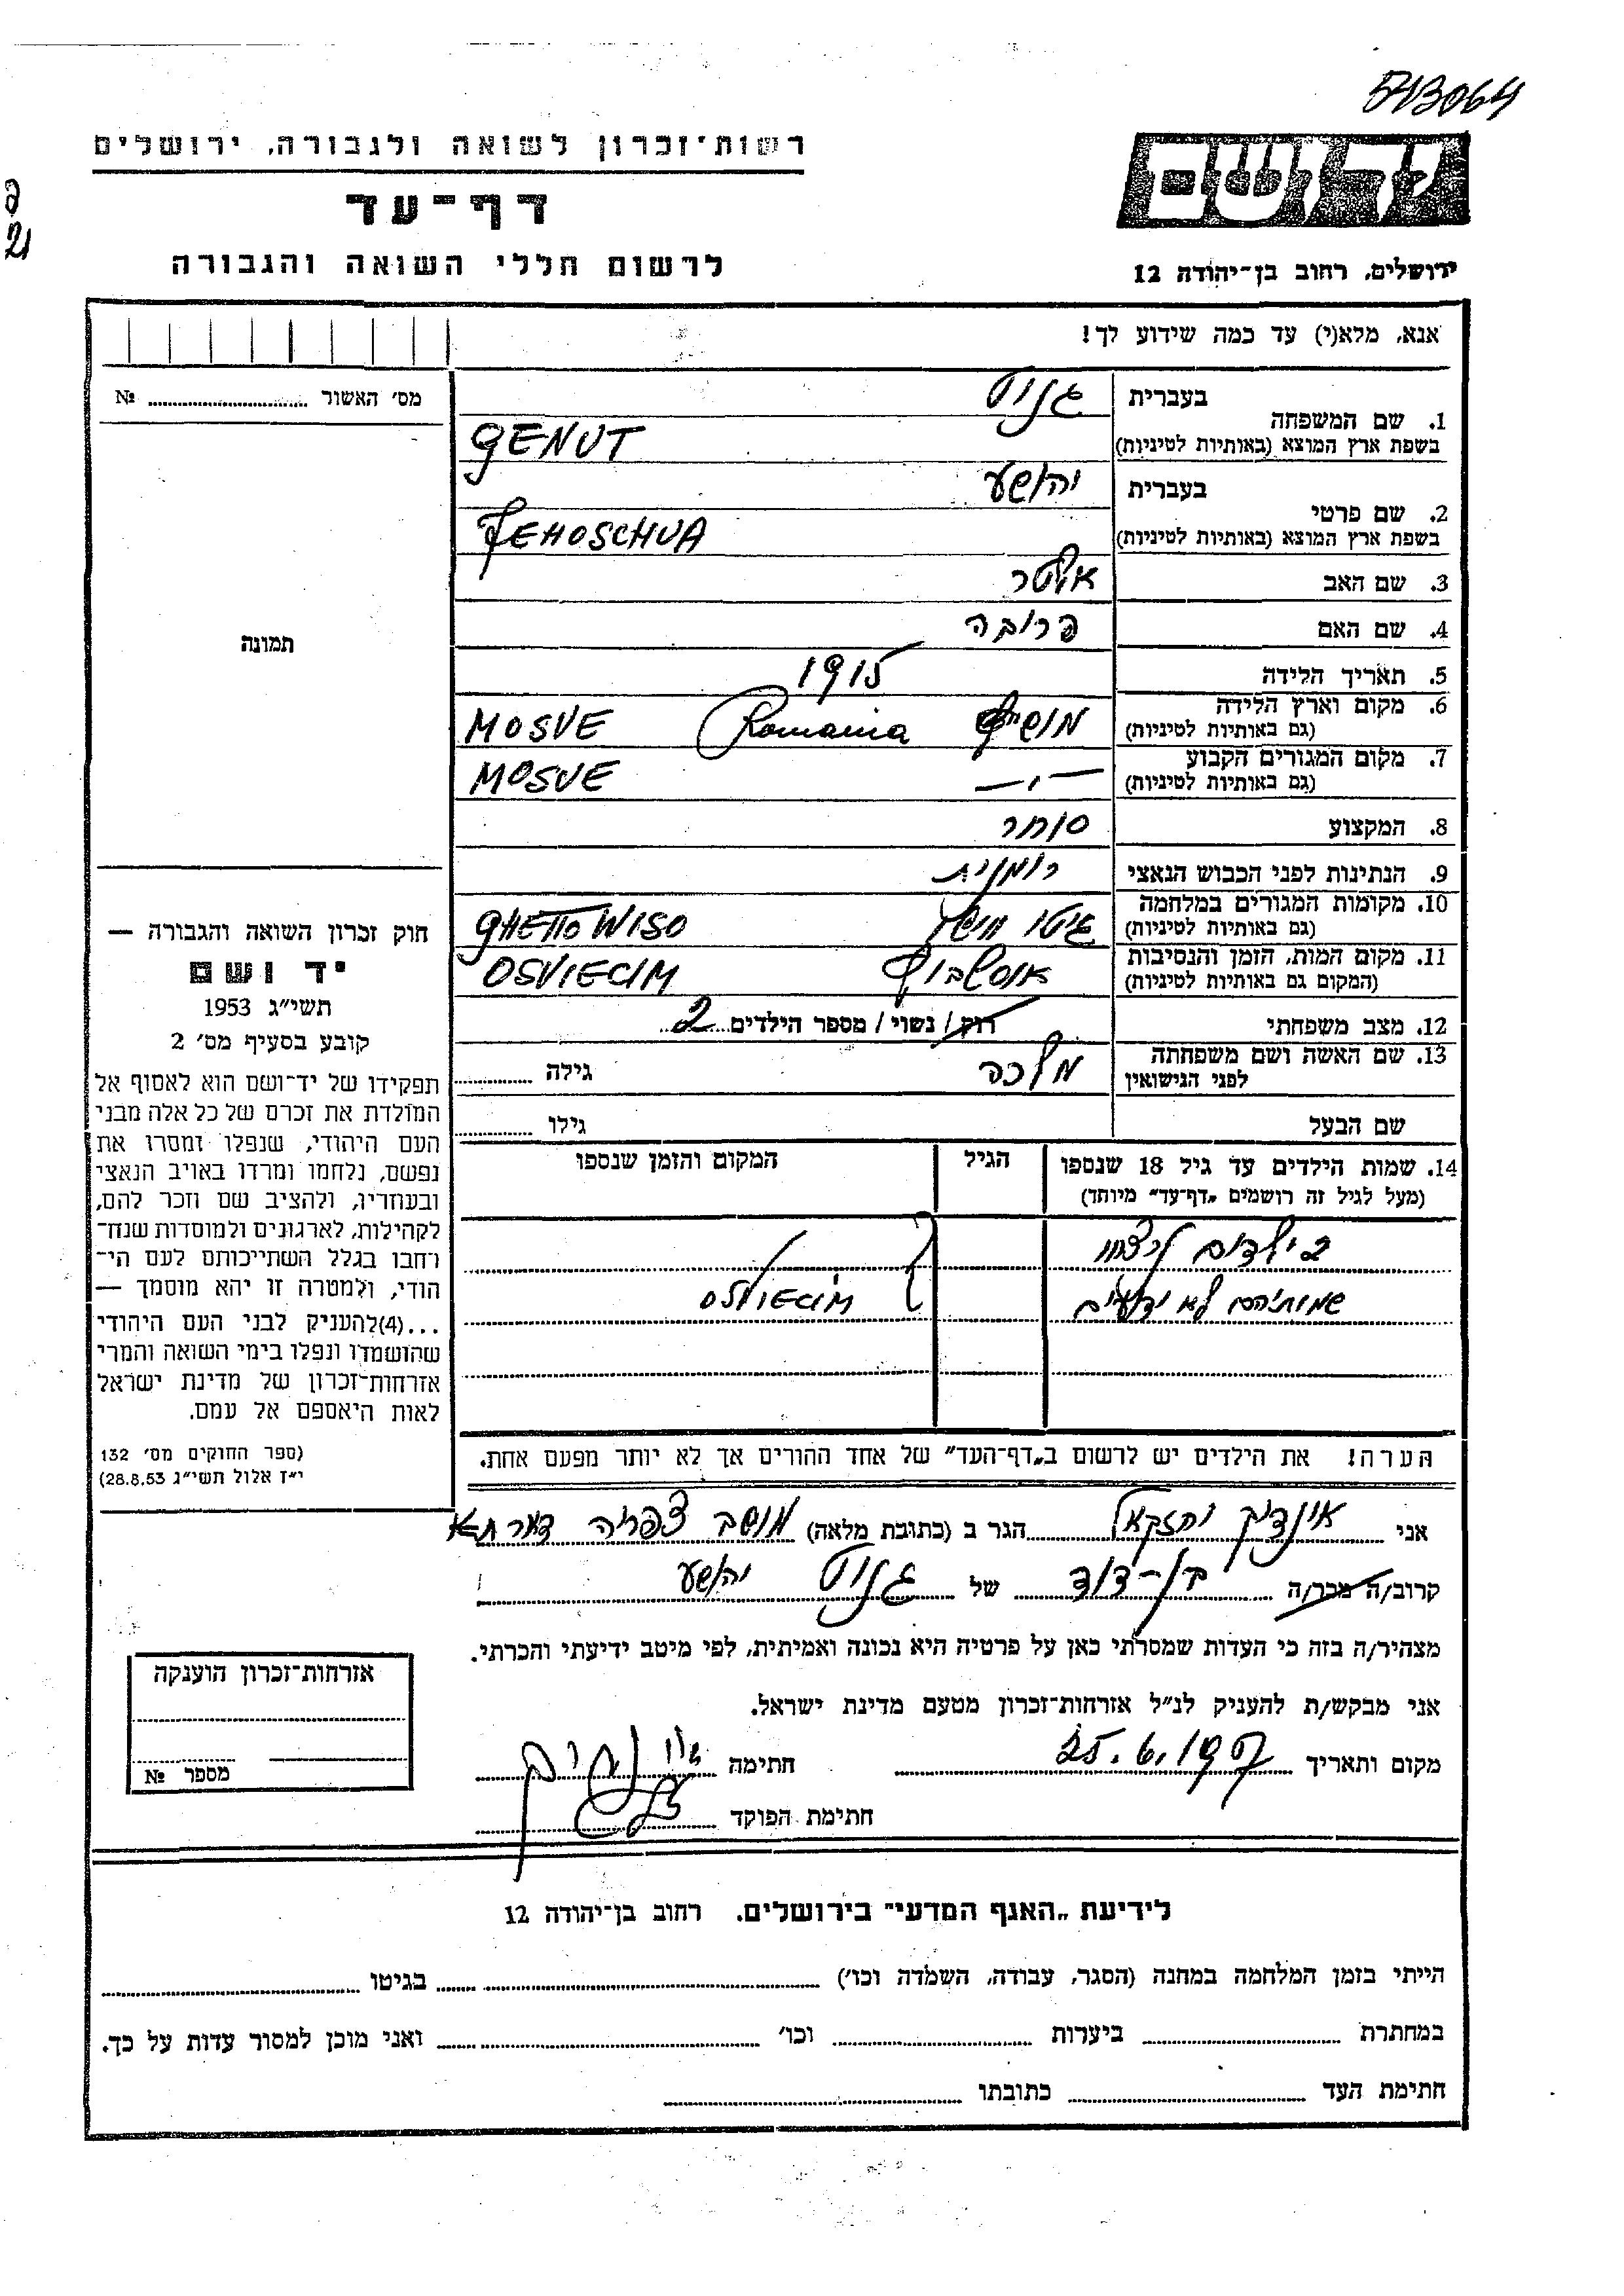 543064
רשות־זכרון לשואה ולגבורה, ירושלים
יד ושם
דף־עד
לרשום חללי השואה והגבורה
ירושלים, רחוב בן־יהודה 12
אנא, מלא(י) עד כמה שידוע לך!
מס׳ האשור № ........
בעברית גנוט
1. שם המשפחה
בשפת ארץ המוצא (באותיות לטיניות) GENUT
בעברית יהושע
2. שם פרטי
בשפת ארץ המוצא (באותיות לטיניות) JEHOSCHUA
3. שם האב אלטר
4. שם האם
5. תאריך הלידה 1915
6. מקום וארץ הלידה
(גם באותיות לטיניות) Romania MOSVE
7. מקום המגורים הקבוע
(גם באותיות לטיניות) —״— MOSVE
8. המקצוע סוחר
9. הנתינות לפני הכבוש הנאצי רומנית
10. מקומות המגורים במלחמה
(גם באותיות לטיניות) גיטו GHETTO WISO
11. מקום המות, הזמן והנסיבות
(המקום גם באותיות לטיניות) OSVIECIM
12. מצב משפחתי רוק / נשוי / מספר הילדים 2
13. שם האשה ושם משפחתה
לפני הנישואין מלכה גילה ........
שם הבעל גילו ........
14. שמות הילדים עד גיל 18 שנספו הגיל המקום והזמן שנספו
(מעל לגיל זה רושמים „דף־עד״ מיוחד)
2 ילדים נרצחו
שמותיהם לא ידועים OSVIECIM
הערה! את הילדים יש לרשום ב„דף־העד״ של אחד ההורים אך לא יותר מפעם אחת.
תמונה
חוק זכרון השואה והגבורה —
יד ושם
תשי״ג 1953
קובע בסעיף מס׳ 2
תפקידו של יד־ושם הוא לאסוף אל
המולדת את זכרם של כל אלה מבני
העם היהודי, שנפלו ומסרו את
נפשם, נלחמו ומרדו באויב הנאצי
ובעוזריו, ולהציב שם וזכר להם,
לקהילות, לארגונים ולמוסדות שנח־
רחבו בגלל השתייכותם לעם הי־
הודי, ולמטרה זו יהא מוסמך —
...(4)להעניק לבני העם היהודי
שהושמדו ונפלו בימי השואה והמרי
אזרחות־זכרון של מדינת ישראל
לאות היאספם אל עמם.
(ספר החוקים מס׳ 132
י״ז אלול תשי״ג 28.8.53)
אני יחזקאל הגר ב (כתובת מלאה) מושב צפריה
קרוב/ה מכר/ה בן-דוד של גנוט יהושע
מצהיר/ה בזה כי העדות שמסרתי כאן על פרטיה היא נכונה ואמיתית, לפי מיטב ידיעתי והכרתי.
אני מבקש/ת להעניק לנ״ל אזרחות־זכרון מטעם מדינת ישראל.
מקום ותאריך חתימה
חתימת הפוקד
אזרחות־זכרון הוענקה
מספר №
לידיעת „האגף המדעי״ בירושלים. רחוב בן־יהודה 12
הייתי בזמן המלחמה במחנה (הסגר, עבודה, השמדה וכו׳) ........ בגיטו ........
במחתרת ........ ביערות ........ וכו׳ ........ ואני מוכן למסור עדות על כך.
חתימת העד ........ כתובתו ........